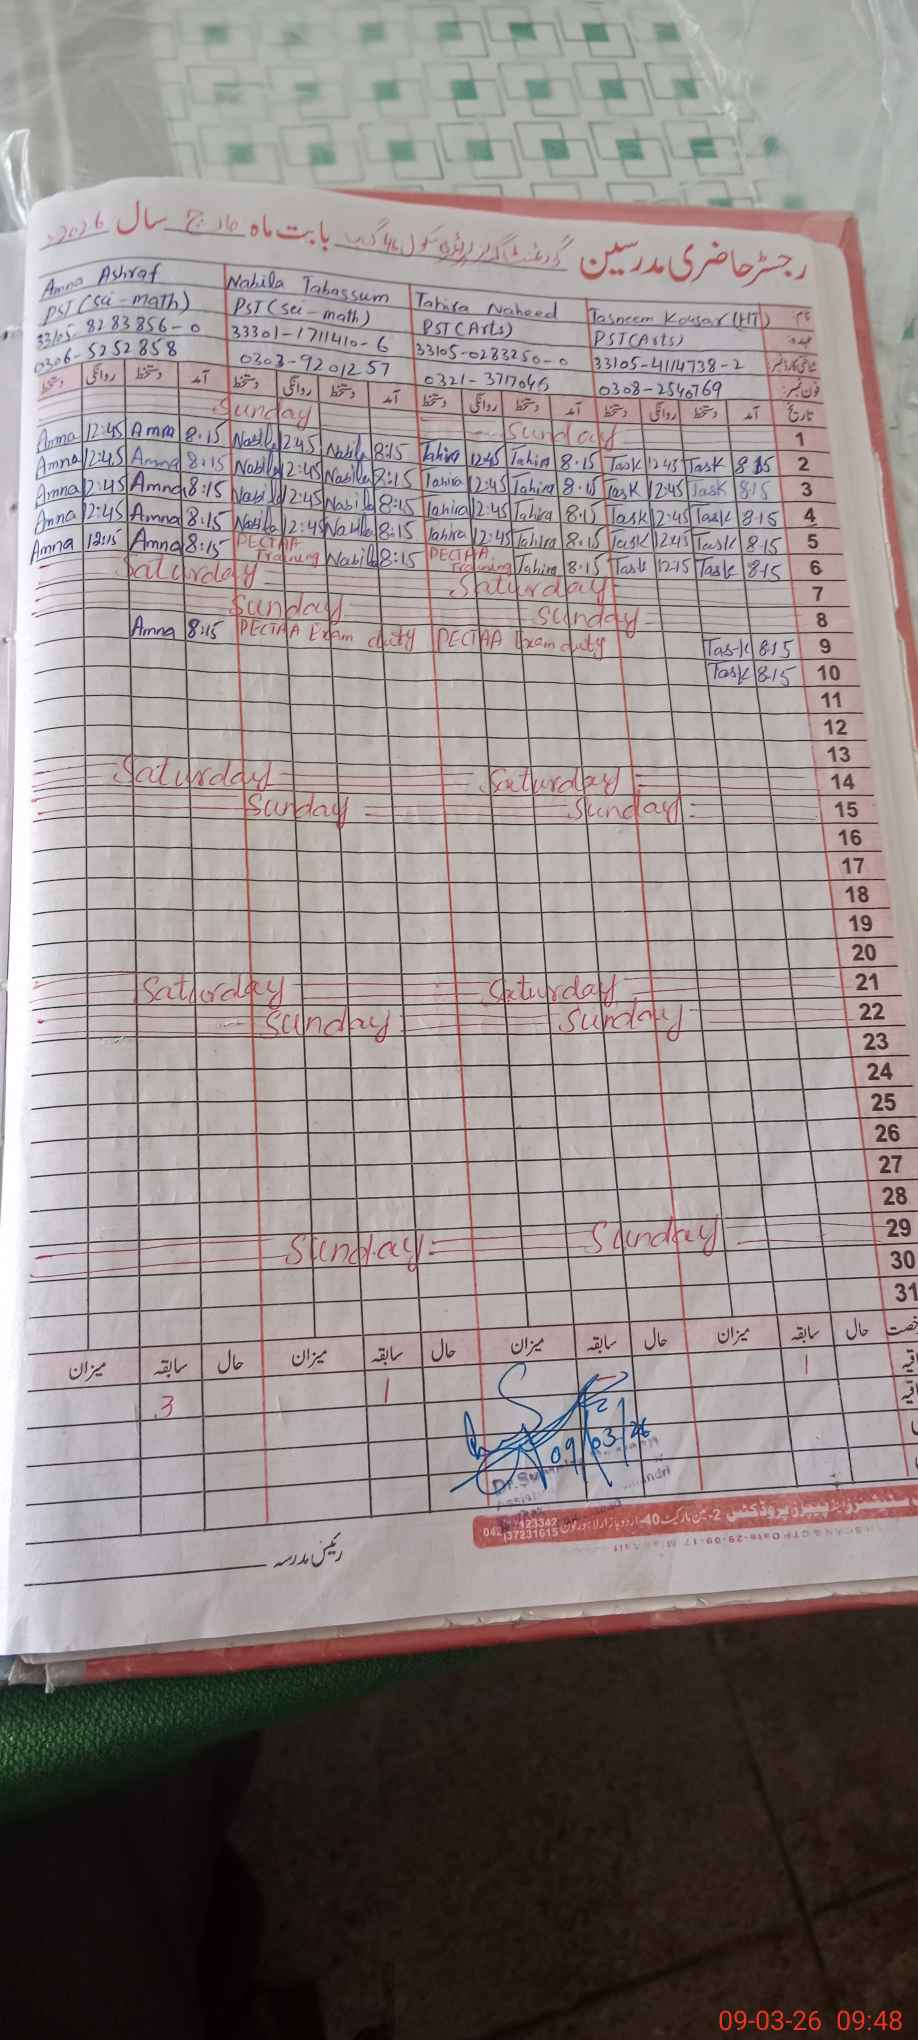 رجسٹر حاضری مدرسین بابت ماہ مارچ سال 2026
نام Tasneem Kousar (HT) Tahira Naheed Nabila Tabassum Amna Ashraf
عہدہ PST(Arts) PST(Arts) PST(sci-math) PST(sci-math)
33105-4114738-2 33105-0283250-0 33301-1711410-6 33105-8283856-0
فون نمبر 0308-2540769 0303-9201257 0306-5252858
تاریخ آمد دستخط روانگی دستخط آمد دستخط روانگی دستخط آمد دستخط روانگی دستخط آمد دستخط روانگی دستخط
1 Sunday Sunday
2 8:15 Task 12:45 Task 8:15 Tahira 12:45 Tahira 8:15 Nabila 12:45 Nabila 8:15 Amna 12:45 Amna
3 8:15 Task 12:45 Task 8:15 Tahira 12:45 Tahira 8:15 Nabila 12:45 Nabila 8:15 Amna 12:45 Amna
4 8:15 Task 12:45 Task 8:15 Tahira 12:45 Tahira 8:15 Nabila 12:45 Nabila 8:15 Amna 12:45 Amna
5 8:15 Task 12:45 Task 8:15 Tahira 12:45 Tahira 8:15 Nabila 12:45 Nabila 8:15 Amna 12:45 Amna
6 8:15 Task 12:15 Task 8:15 Tahira PECTAA Training 8:15 Nabila PECTAA Training 8:15 Amna 12:15 Amna
7 Saturday Saturday
8 Sunday Sunday
9 8:15 Task PECTAA Exam duty PECTAA Exam duty 8:15 Amna
10 8:15 Task
11
12
13
14 Saturday Saturday
15 Sunday Sunday
16
17
18
19
20
21 Saturday Saturday
22 Sunday Sunday
23
24
25
26
27
28
29 Sunday Sunday
30
31
حال سابقہ میزان حال سابقہ میزان حال سابقہ میزان حال سابقہ میزان
1 1 3
09/03/26
رئیس مدرسہ
37231615
09-03-26 09:48